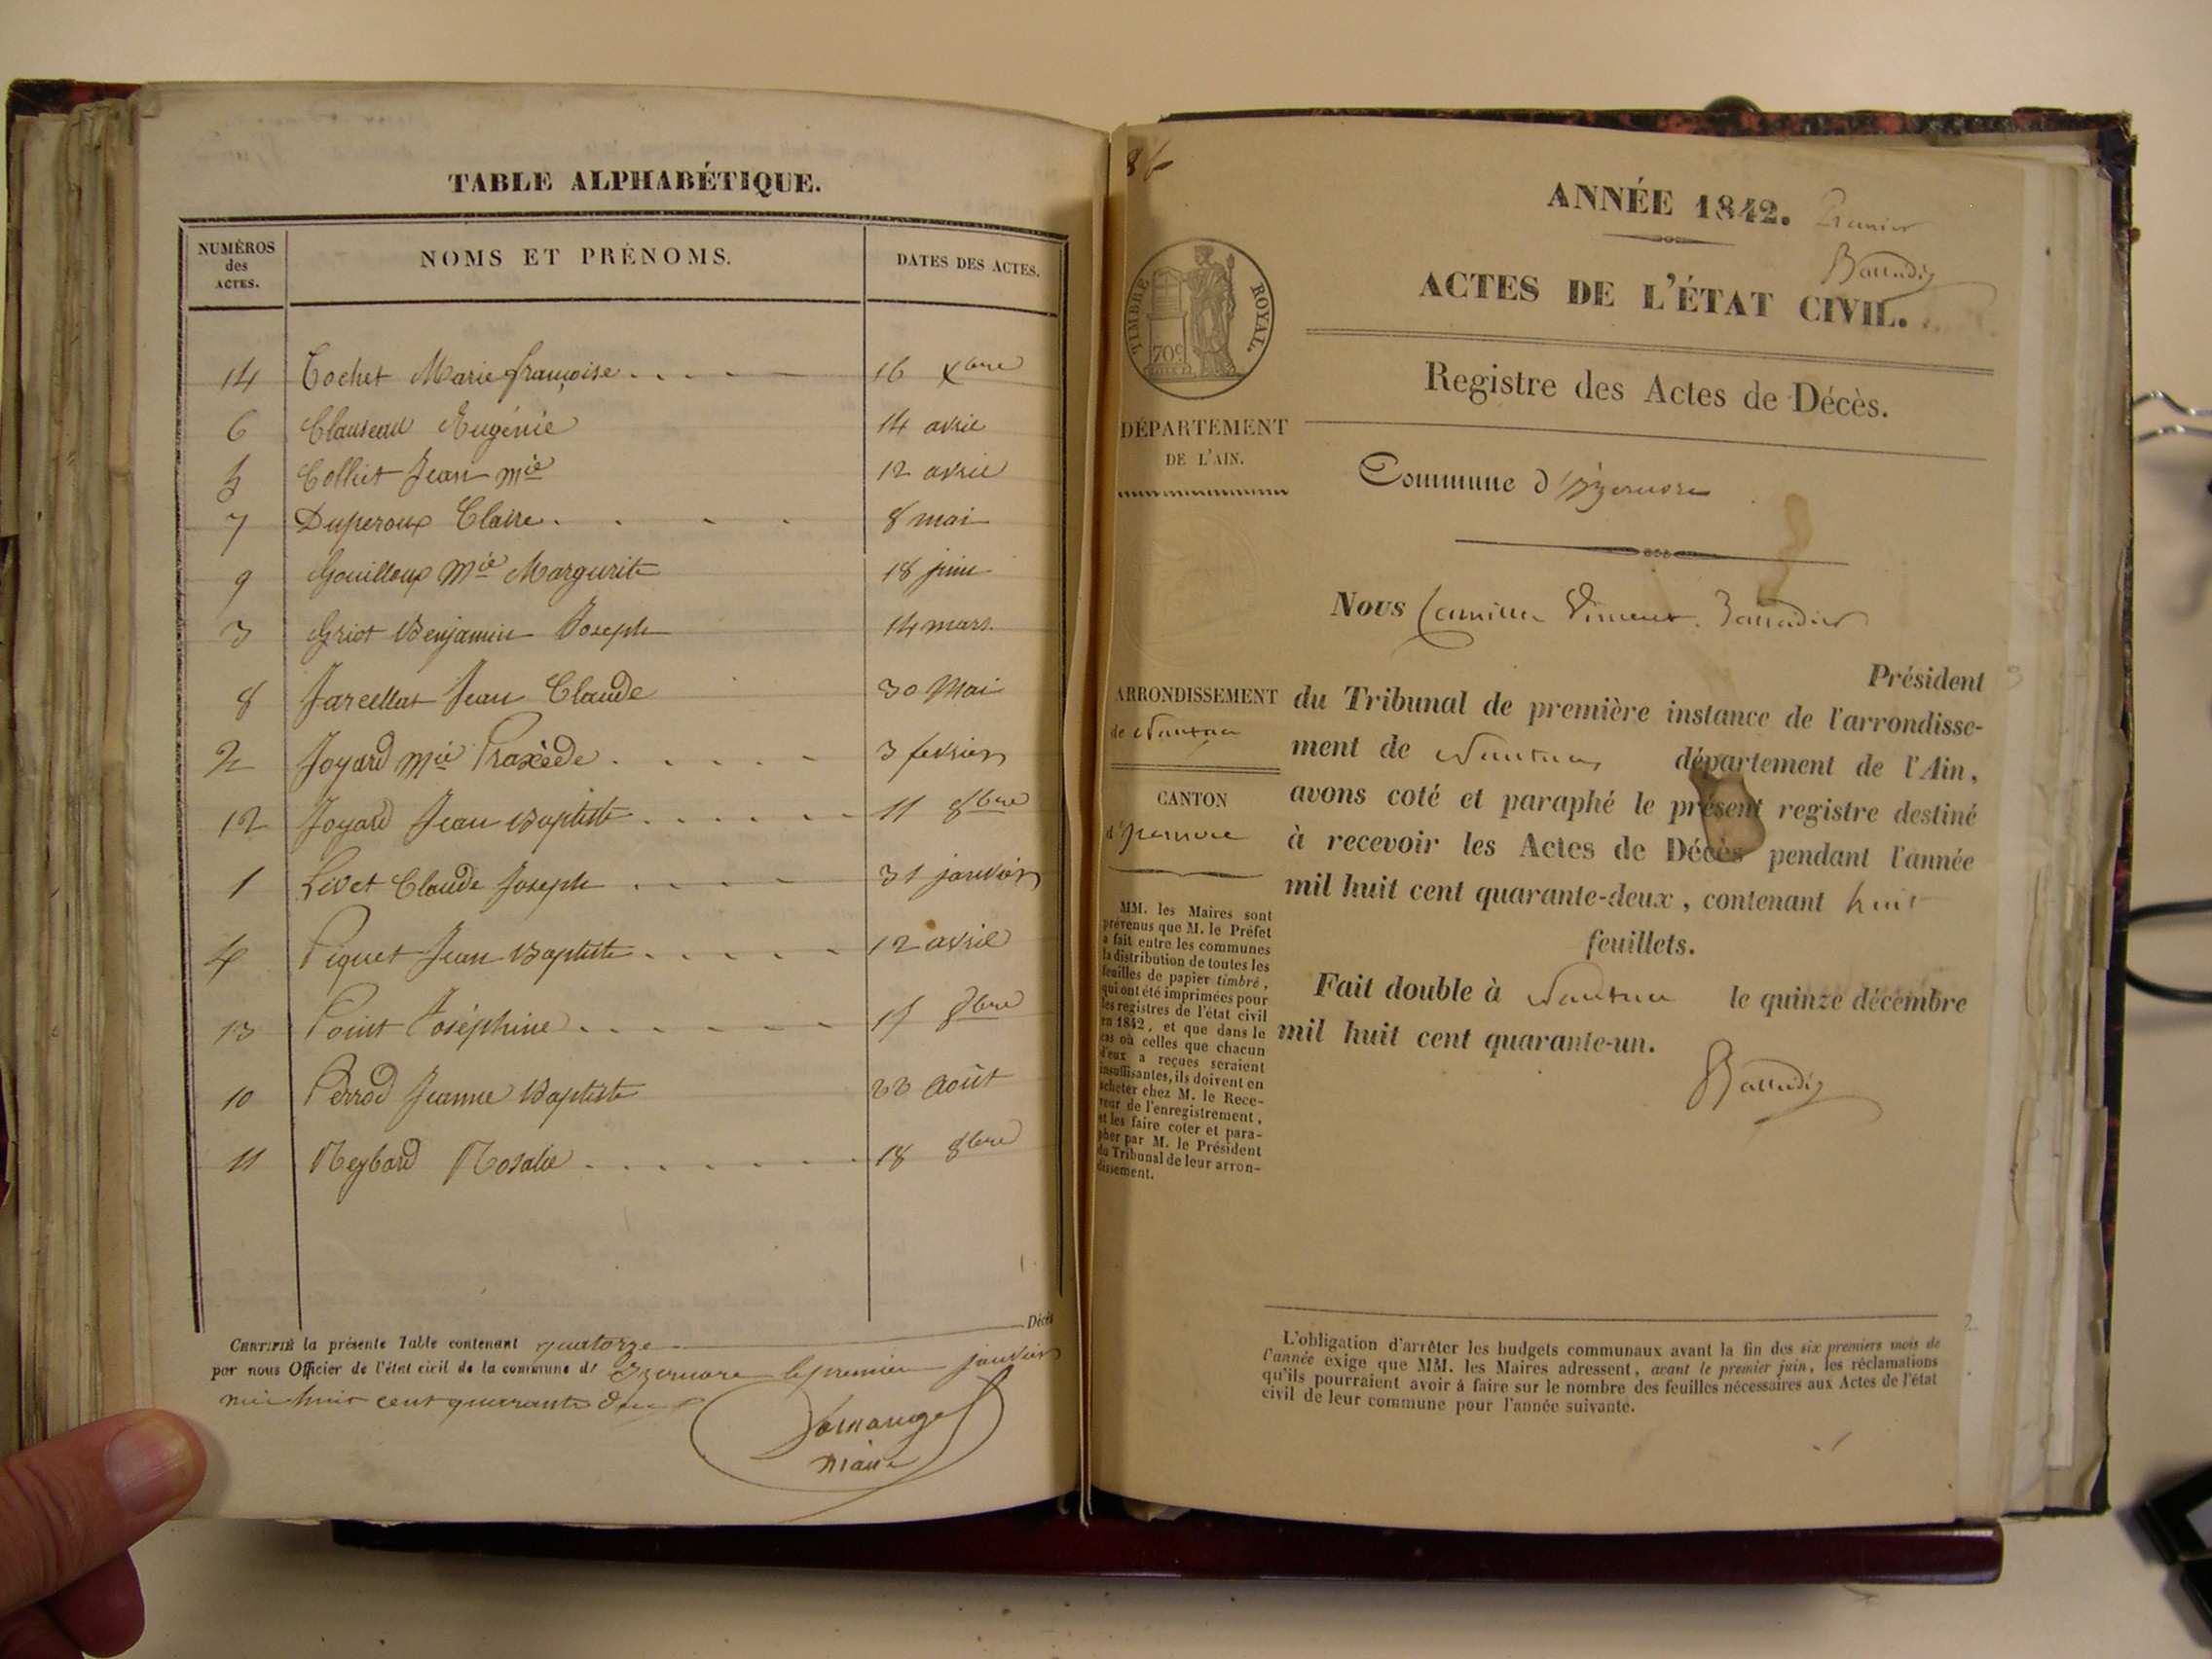 TABLE ALPHABÉTIQUE.
NUMÉROS des ACTES. NOMS ET PRÉNOMS. DATES DES ACTES.
14 Cochet Marie françoise 16 Xbre
6 Clauseau Eugénie 14 avril
5 Colliet Jean Mie 12 avril
7 Duperoux Claire 8 mai
9 Gouilloux Mie Margurite 18 juin
3 Griot Benjamin Joseph 14 mars
8 Jarcellat Jean Claude 30 Mai
2 Joyard Mie Praxède 3 fevrier
12 Joyard Jean Baptiste 11 8bre
1 Livet Claude Joseph 31 janvier
4 Piquet Jean Baptiste 12 avril
13 Point Joséphine 15 8bre
10 Perrod Jeanne Baptiste 22 Août
11 Reybard Rosalie 18 8bre
CERTIFIÉ la présente Table contenant quatorze Décès
par nous Officier de l'état civil de la commune d' Izernore le premier janvier
mil huit cent quarante deux
maire
86
ANNÉE 1842. Premier
Balladier
ACTES DE L'ÉTAT CIVIL.
TIMBRE ROYAL.
70c
Registre des Actes de Décès.
DÉPARTEMENT
DE L'AIN.
Commune d'Izernore
Nous Camille Vincent Balladier
Président
ARRONDISSEMENT
de Nantua
du Tribunal de première instance de l'arrondisse-
ment de Nantua, département de l'Ain,
avons coté et paraphé le présent registre destiné
à recevoir les Actes de Décès pendant l'année
mil huit cent quarante-deux, contenant huit
feuillets.
Fait double à Nantua le quinze décembre
mil huit cent quarante-un.
Balladier
CANTON
d'Izernore
MM. les Maires sont
prévenus que M. le Préfet
a fait entre les communes
la distribution de toutes les
feuilles de papier timbré,
qui ont été imprimées pour
les registres de l'état civil
en 1842, et que dans le
cas où celles que chacun
d'eux a reçues seraient
insuffisantes, ils doivent en
acheter chez M. le Rece-
veur de l'enregistrement,
et les faire coter et para-
pher par M. le Président
du Tribunal de leur arron-
dissement.
L'obligation d'arrêter les budgets communaux avant la fin des six premiers mois de
l'année exige que MM. les Maires adressent, avant le premier juin, les réclamations
qu'ils pourraient avoir à faire sur le nombre des feuilles nécessaires aux Actes de l'état
civil de leur commune pour l'année suivante.